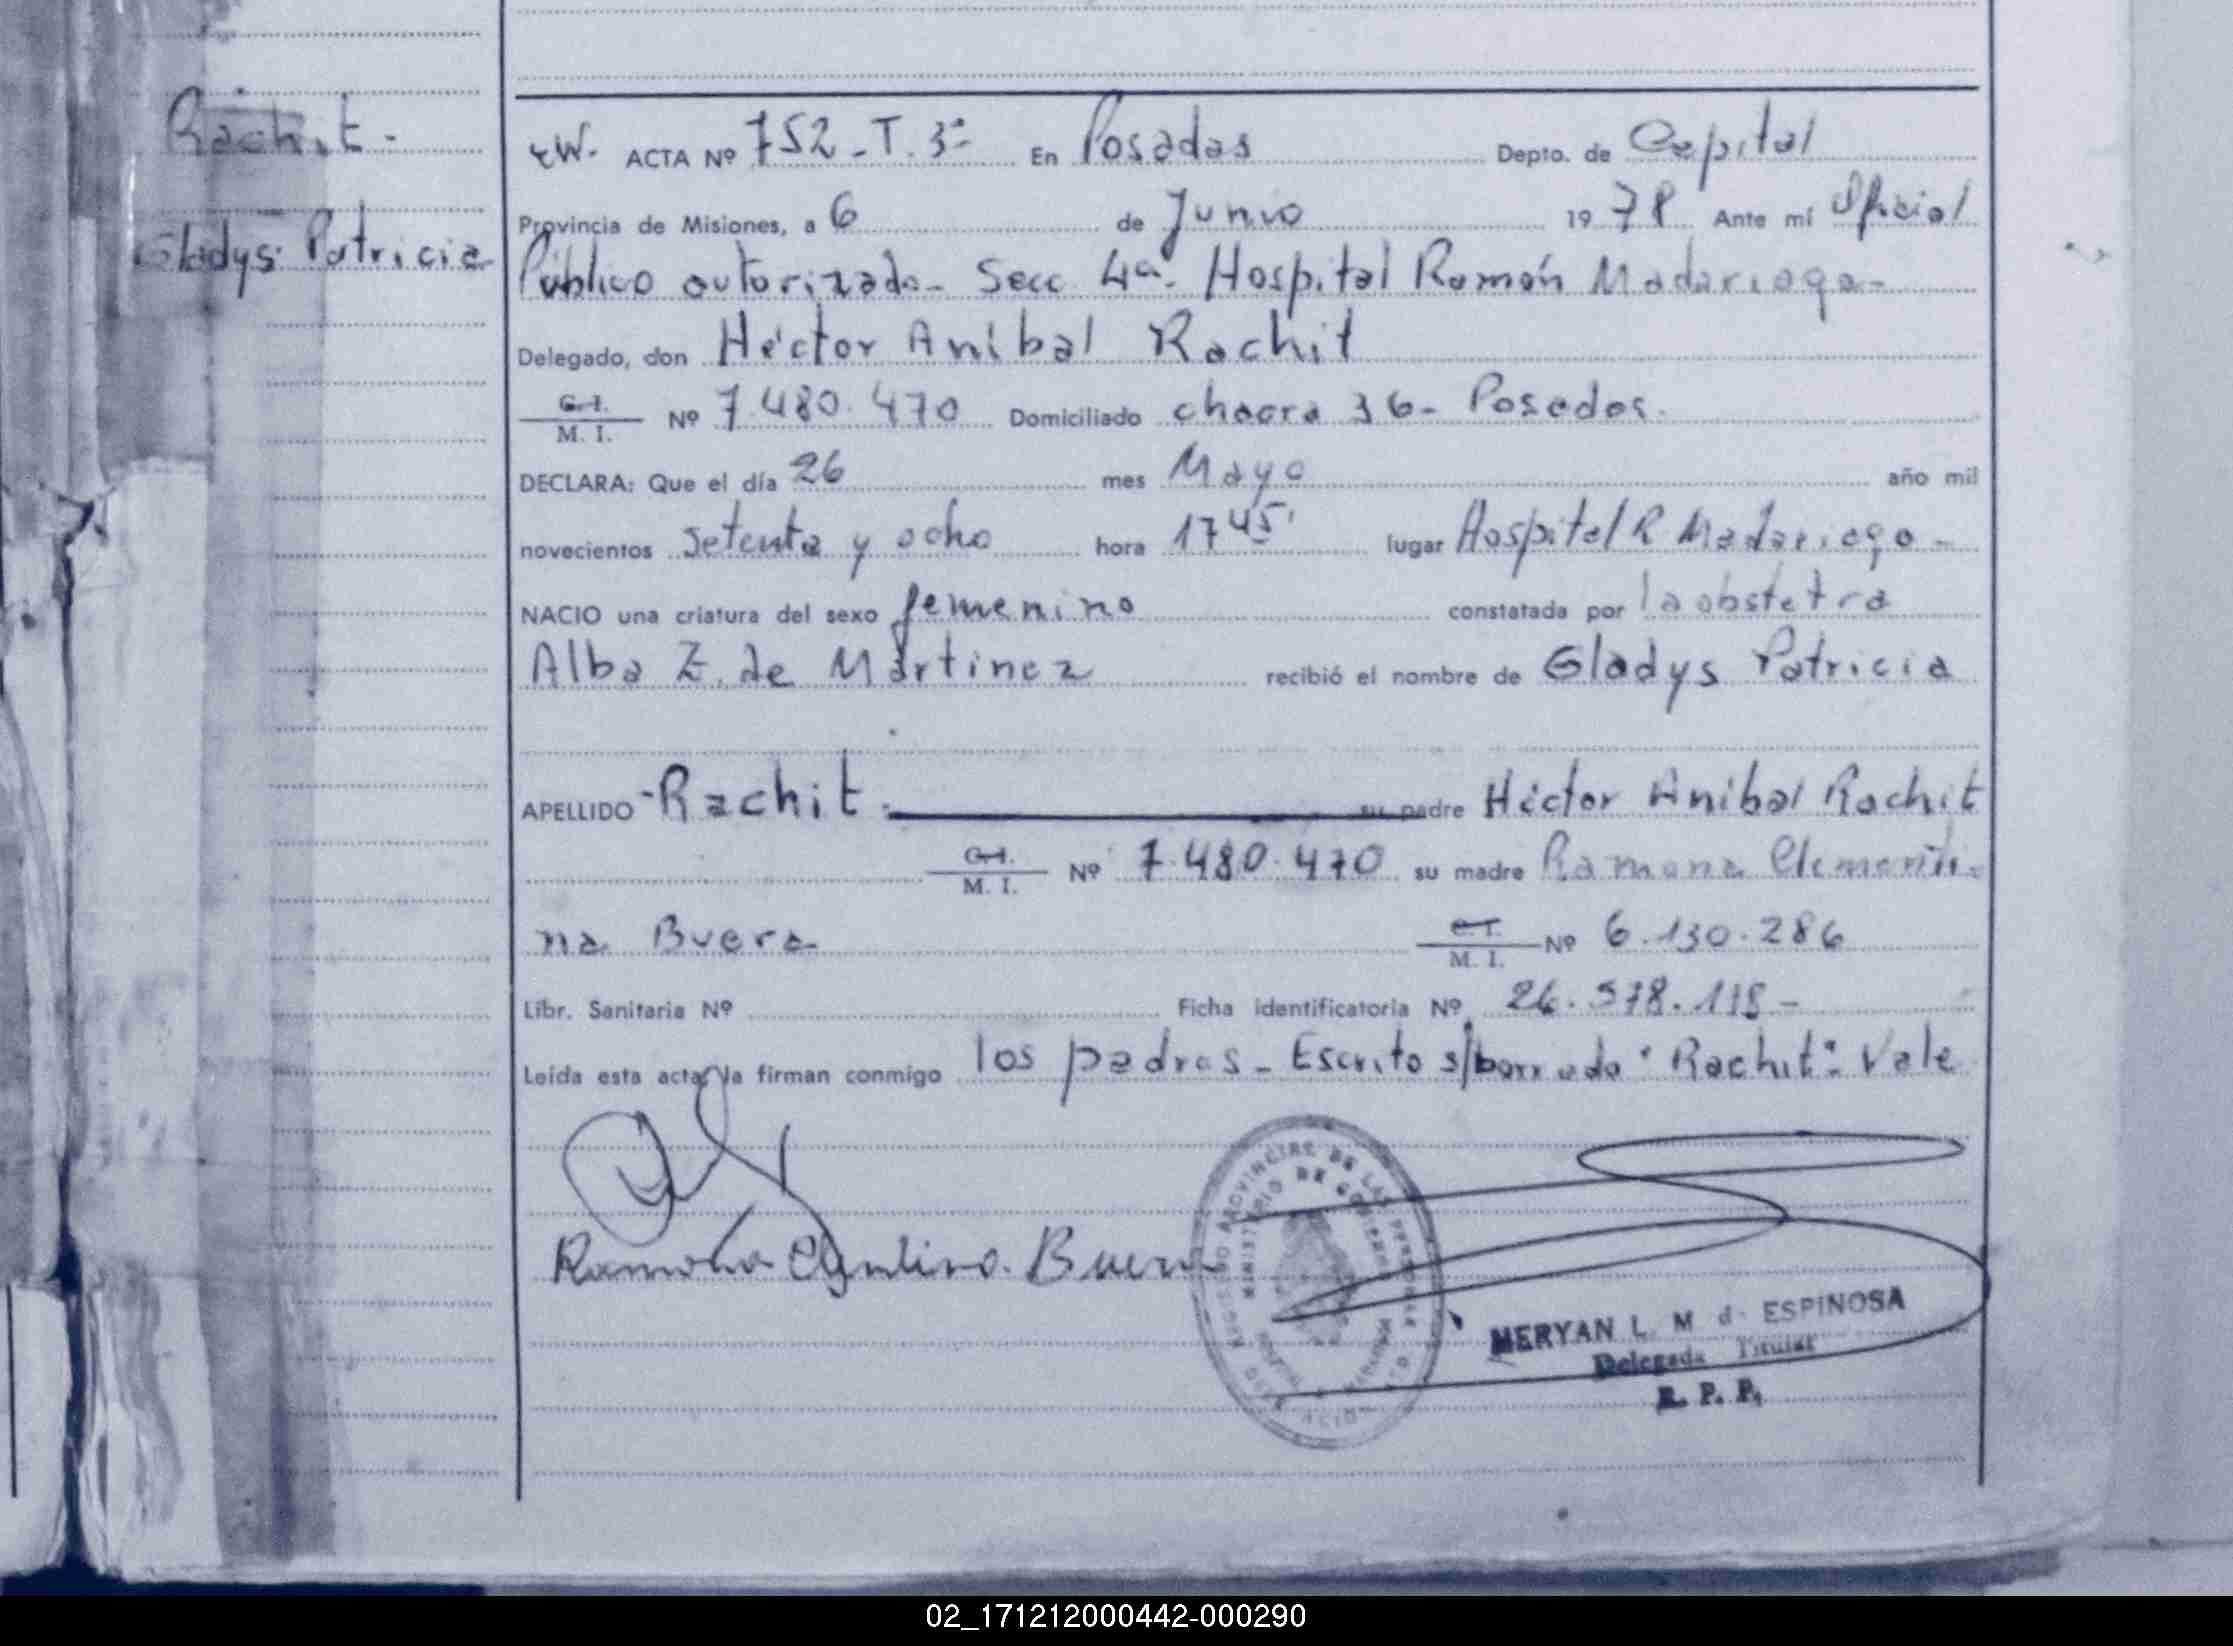 Rachit -
Gladys Patricia
ACTA Nº 752 - T. 3º En Posadas Depto. de Capital
Provincia de Misiones, a 6 de Junio 1978 Ante mí Oficial
Público autorizado - Secc 4ª. Hospital Ramón Madariaga -
Delegado, don Héctor Aníbal Rachit
C. I.
M. I. Nº 7.480.470 Domiciliado chacra 36 - Posadas.
DECLARA: Que el día 26 mes Mayo año mil
novecientos setenta y ocho hora 17 45' lugar Hospital R Madariaga -
NACIO una criatura del sexo femenino constatada por la obstetra
Alba Z. de Martinez recibió el nombre de Gladys Patricia
APELLIDO - Rachit. su padre Héctor Aníbal Rachit
C. I.
M. I. Nº 7.480.470 su madre Ramona
na Buera
C. I.
M. I. Nº 6.130.286
Libr. Sanitaria Nº Ficha identificatoria Nº 26.578.
Leída esta acta, la firman conmigo los padres - Escrito s/borrado "Rachit": Vale
Ramona Buera
REGISTRO PROVINCIAL DE LAS PERSONAS
MINISTERIO DE GOBIERNO
MERYAN L. M d ESPINOSA
Delegada Titular
R. P. P.
02_171212000442-000290